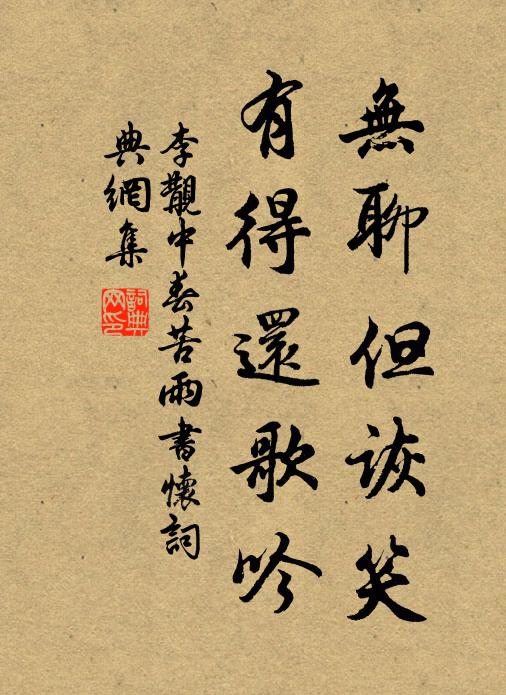 無聊但詼笑
有得還歌吟
李觀中春苦雨書懷詞
典網集
詞典
網印